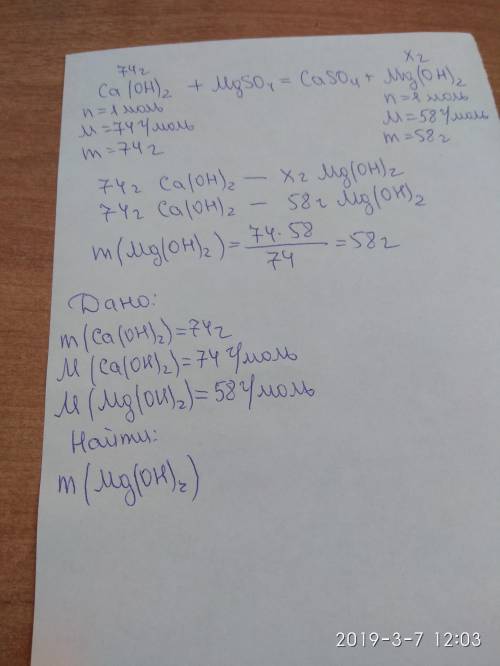 74г xг
Ca(OH)₂ + MgSO₄ = CaSO₄ + Mg(OH)₂
n = 1 моль n = 1 моль
M = 74 г/моль M = 58 г/моль
m = 74 г m = 58 г
74г Ca(OH)₂ — xг Mg(OH)₂
74г Ca(OH)₂ — 58г Mg(OH)₂
m(Mg(OH)₂) = 74·58/74 = 58г
Дано:
m(Ca(OH)₂) = 74г
M(Ca(OH)₂) = 74 г/моль
M(Mg(OH)₂) = 58 г/моль
Найти:
m(Mg(OH)₂)
2019-3-7 12:03